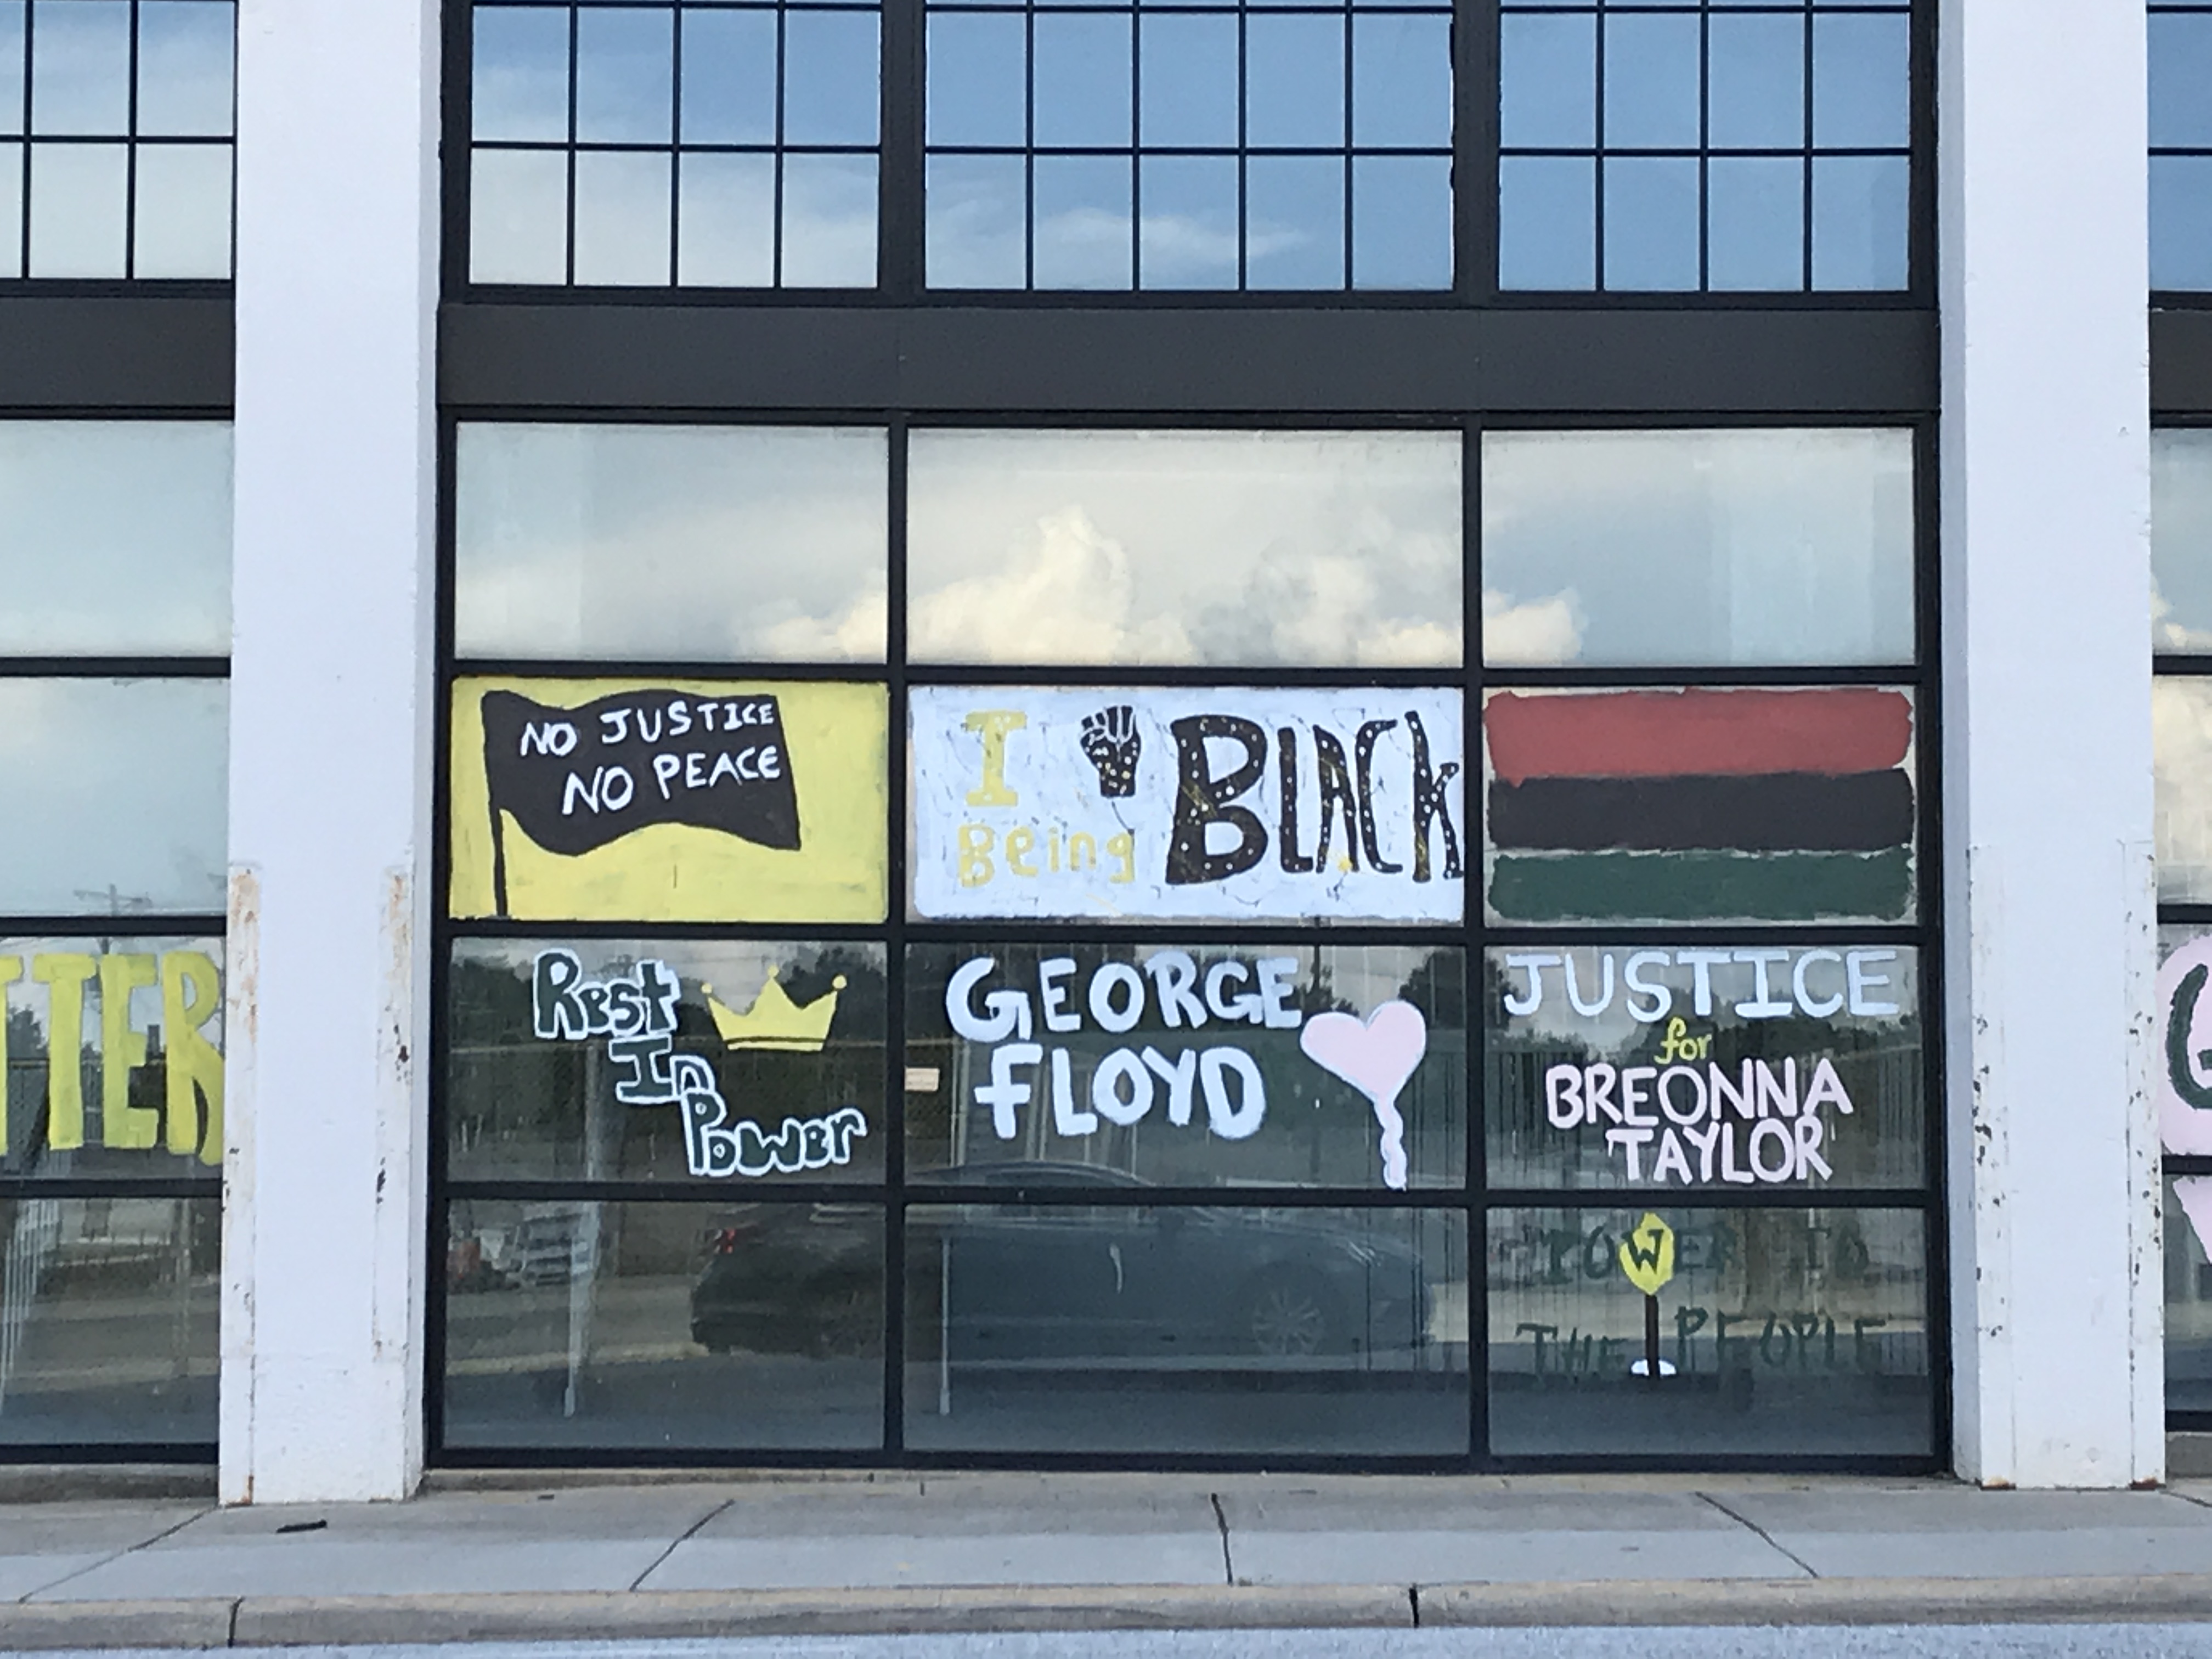 NO JUSTICE
NO PEACE
I
Being
BLACK
Rest
In
Power
GEORGE
FLOYD
JUSTICE
for
BREONNA
TAYLOR
POWER TO
THE PEOPLE
TTER
G